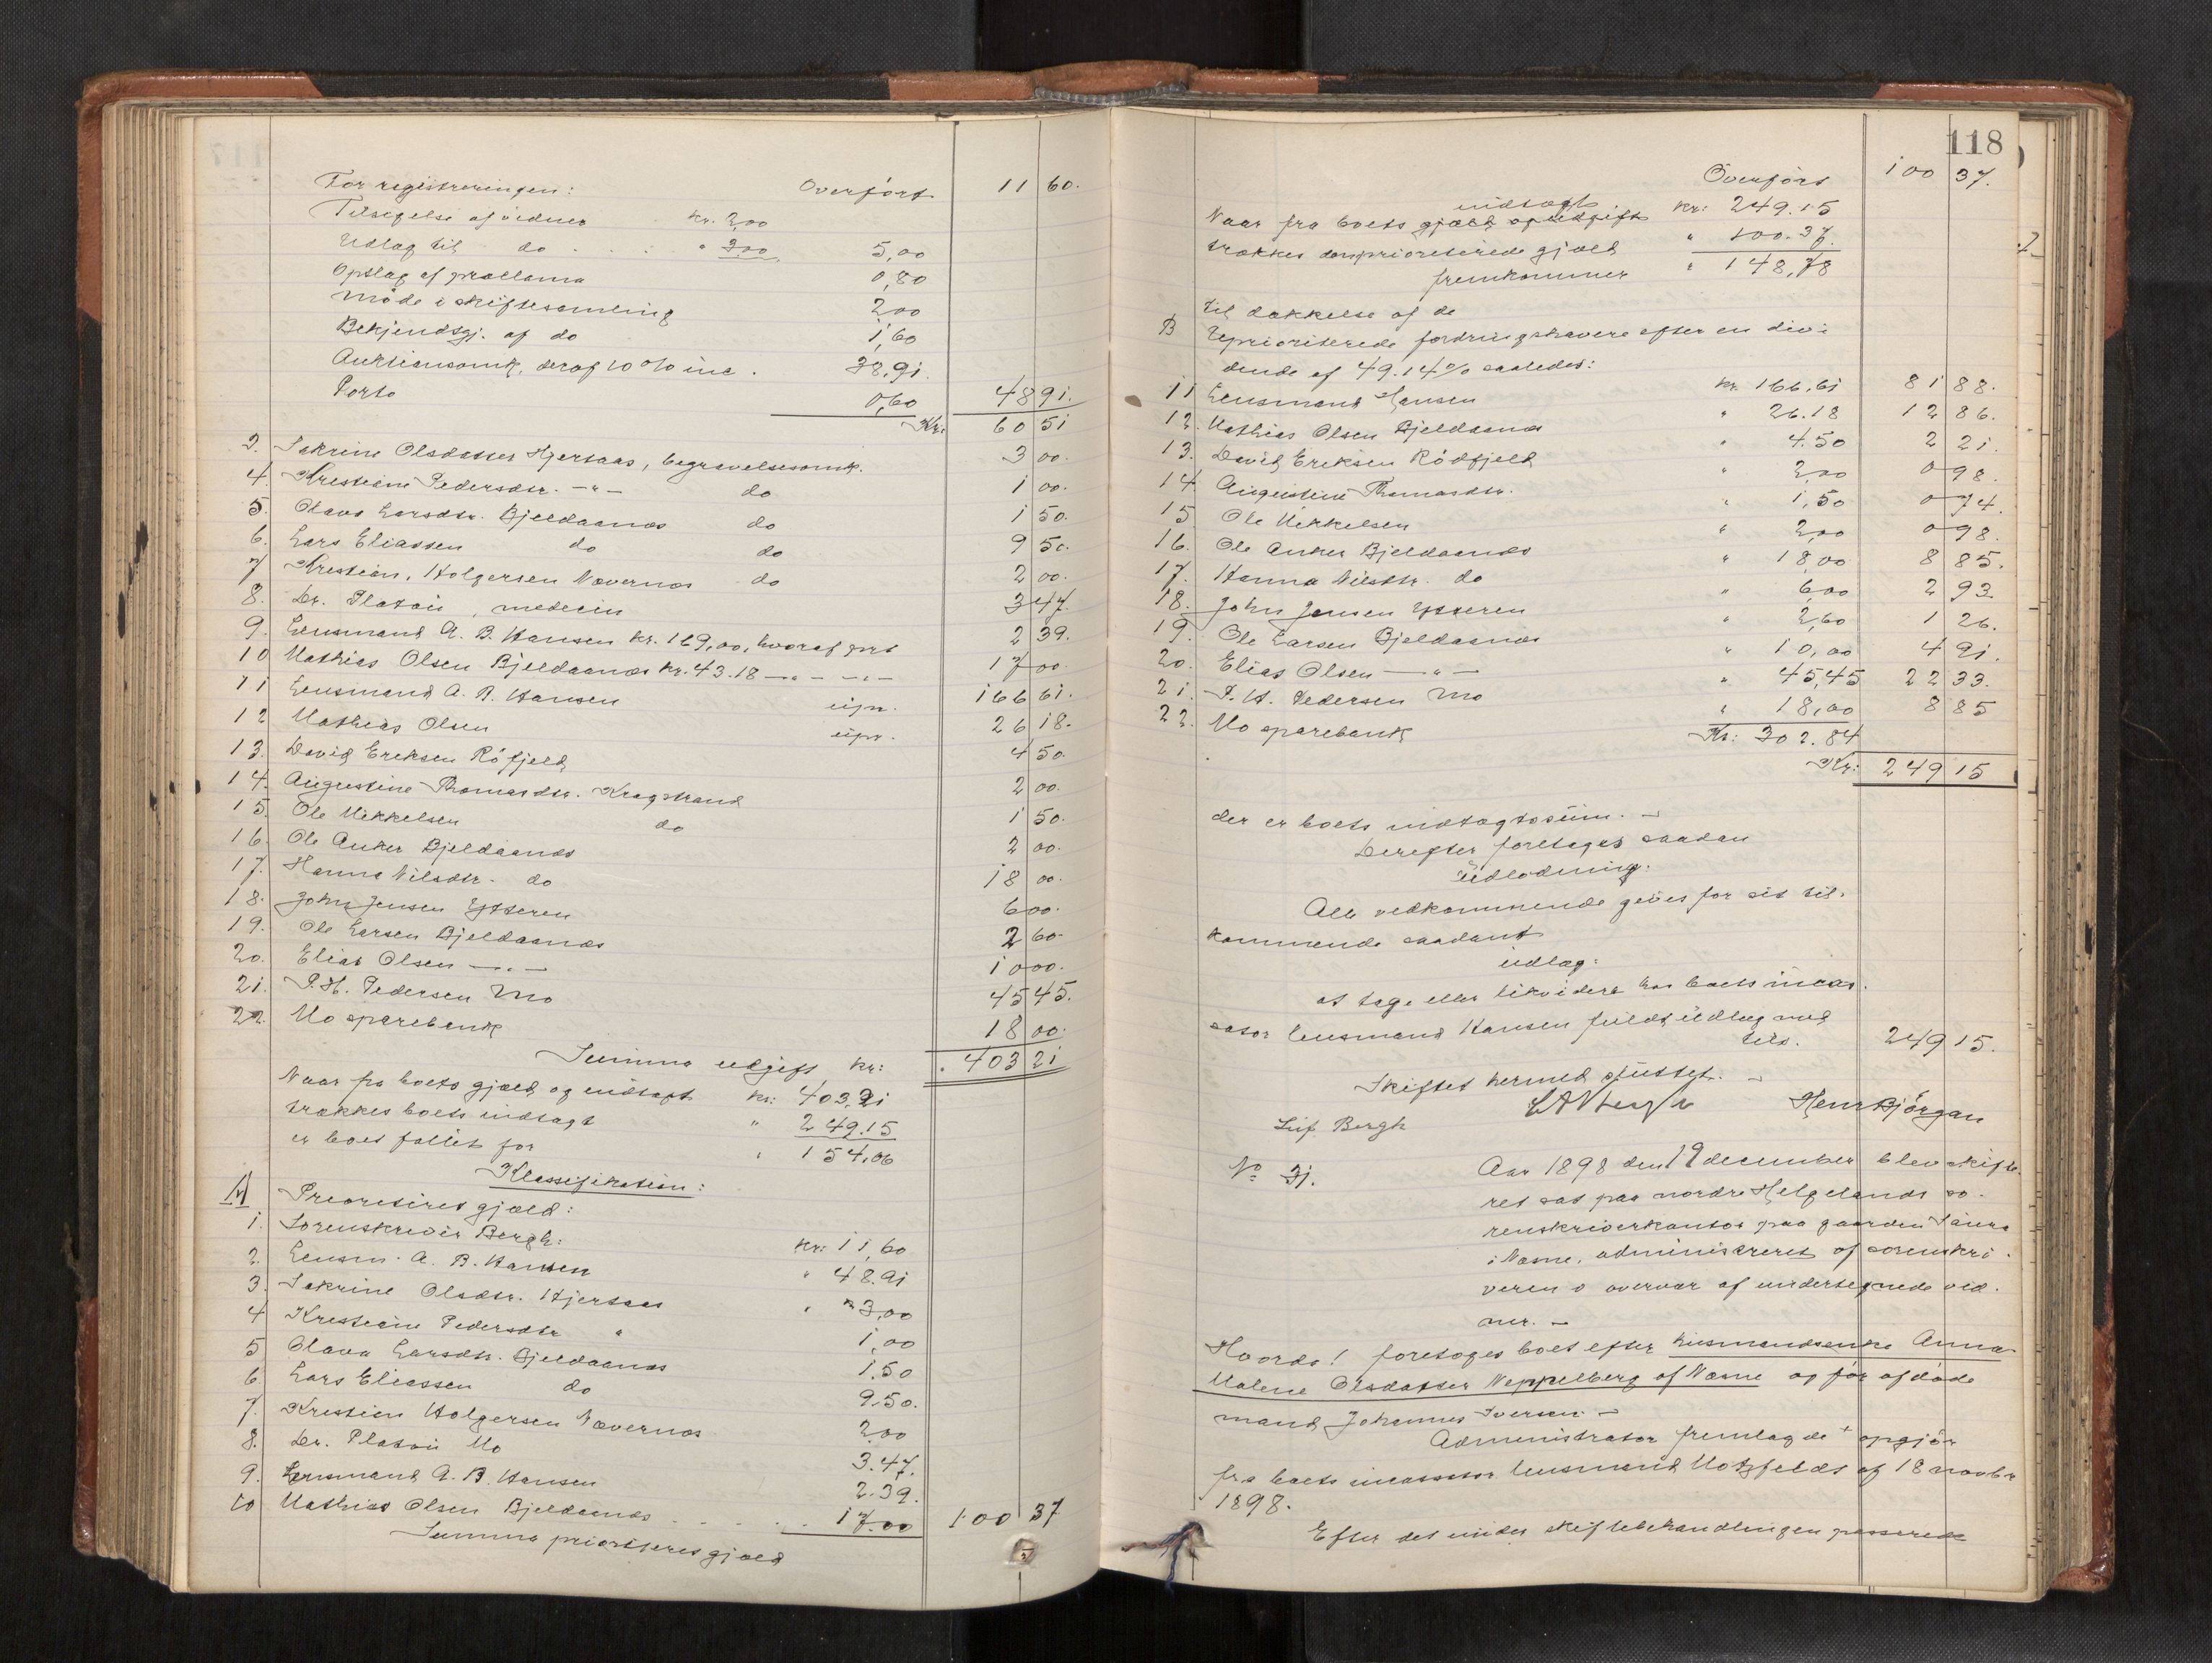 For registreringen: Overført 11 60.
Tilsigelse af vidner kr. 2,00
Udlæg til do " 3,00 5,00
Opslag af proclama 0,80
Møde i skiftesamling 2,00
Bekjendtgj. af do 1,60
Auktionsomk, deraf 10 % inc. 38,91.
Porto 0,60 48 91.
Kr: 60 51
2. Sakrine Olsdatter Hjertaas, begravelsesomk. 3 00.
4. Kristine Pedersdtr. -"- do 1 00.
5. Olava Larsdtr. Bjeldaanæs do 1 50.
6. Lars Eliassen do do 9 50.
7 Kristian Holgersen Nævernæs do 2 00.
8. Dr. Platou, medecin 3 47.
9. Lensmand A. B. Hansen kr. 169,00, hvoraf prt 2 39.
10 Mathias Olsen Bjeldaanæs kr. 43.18 -"- -"- 17 00.
11 Lensmand A. B. Hansen upr. 166 61.
12 Mathias Olsen upr. 26 18.
13. David Eriksen Røfjeld 4 50.
14. Augustine Thomasdtr. Kragstrand 2 00.
15. Ole Mikkelsen do 1 50.
16. Ole Anker Bjeldaanæs 2 00.
17. Hanna Nilsdtr. do 18 00.
18. John Jensen Ytteren 6 00.
19. Ole Larsen Bjeldaanæs 2 60.
20. Elias Olsen -"- 10 00.
21. P. H. Pedersen Mo 45 45.
22. Mo sparebank 18 00.
Summa udgift kr: 403 21
Naar fra boets gjæld og indtægt kr: 403,21
trækkes boets indtægt " 249.15
er boet fallit for " 154,06
Klassifikation:
A Prioriteret gjæld:
1. Sorenskriver Bergh: kr: 11,60
2. Lensm. A. B. Hansen " 48.91
3. Sakrine Olsdtr. Hjertaas " 3,00
4 Kristine Pedersdtr " 1,00
5 Olava Larsdtr. Bjeldaanæs 1.50
6 Lars Eliassen do 9.50.
7. Kristian Holgersen Nævernæs 2.00
8. Dr. Platou Mo 3.47.
9. Lensmand A. B. Hansen 2.39.
10 Mathias Olsen Bjeldaanæs 17.00 100 37
Summa prioriteret gjæld
118
Overført 100 37.
indtægt
Naar fra boets gjæld og udgift kr: 249.15
trækkes den prioriterede gjæld " 100.37.
fremkommer " 148,78
til dækkelse af de
B Uprioriterede fordringshavere efter en divi-
dende af 49.14% saaledes:
11 Lensmand Hansen kr 166.61 81 88.
12. Mathias Olsen Bjeldaanæs " 26.18 12 86.
13. David Eriksen Rödfjeld " 4.50 2 21.
14. Augustine Thomasdtr. " 2,00 0 98.
15 Ole Mikkelsen " 1,50 0 74.
16. Ole Anker Bjeldaanæs " 2,00 0 98.
17. Hanna Nilsdtr. do " 18,00 8 85.
18. John Jensen Ytteren " 6,00 2 93.
19. Ole Larsen Bjeldaanæs " 2,60 1 26.
20. Elias Olsen -"- " 10,00 4 91.
21. P. H. Pedersen Mo " 45,45 22 33.
22. Mo sparebank " 18,00 8 85
Kr: 302.84
Kr: 249 15
der er boets indtægtssum. -
Derefter foretages saadan
udlodning:
Alle vedkommende gives for sit til-
kommende saadant
udlæg:
at tage eller likvidere hos boets incas-
sator lensmand Hansen fuldt udlæg med
tils. 249 15.
Skiftet hermed sluttet. -
Henr Björgan
Leif Bergh
No 31. Aar 1898 den 19 december blev skifte-
ret sat paa nordre Helgelands so-
renskriverkontor paa gaarden Saura
i Næsne, administreret af sorenskri-
veren i overvær af undertegnede vid-
ner. -
Hvorda! foretoges boet efter husmandsenke Anna
Malene Olsdatter Neppelberg af Næsne og før afdøde
mand Johannes Iversen -
Administrator fremlagde + opgjör
fra boets incassator lensmand Motzfeldt af 18 novbr
1898.
Efter det under skiftebehandlingen passerede